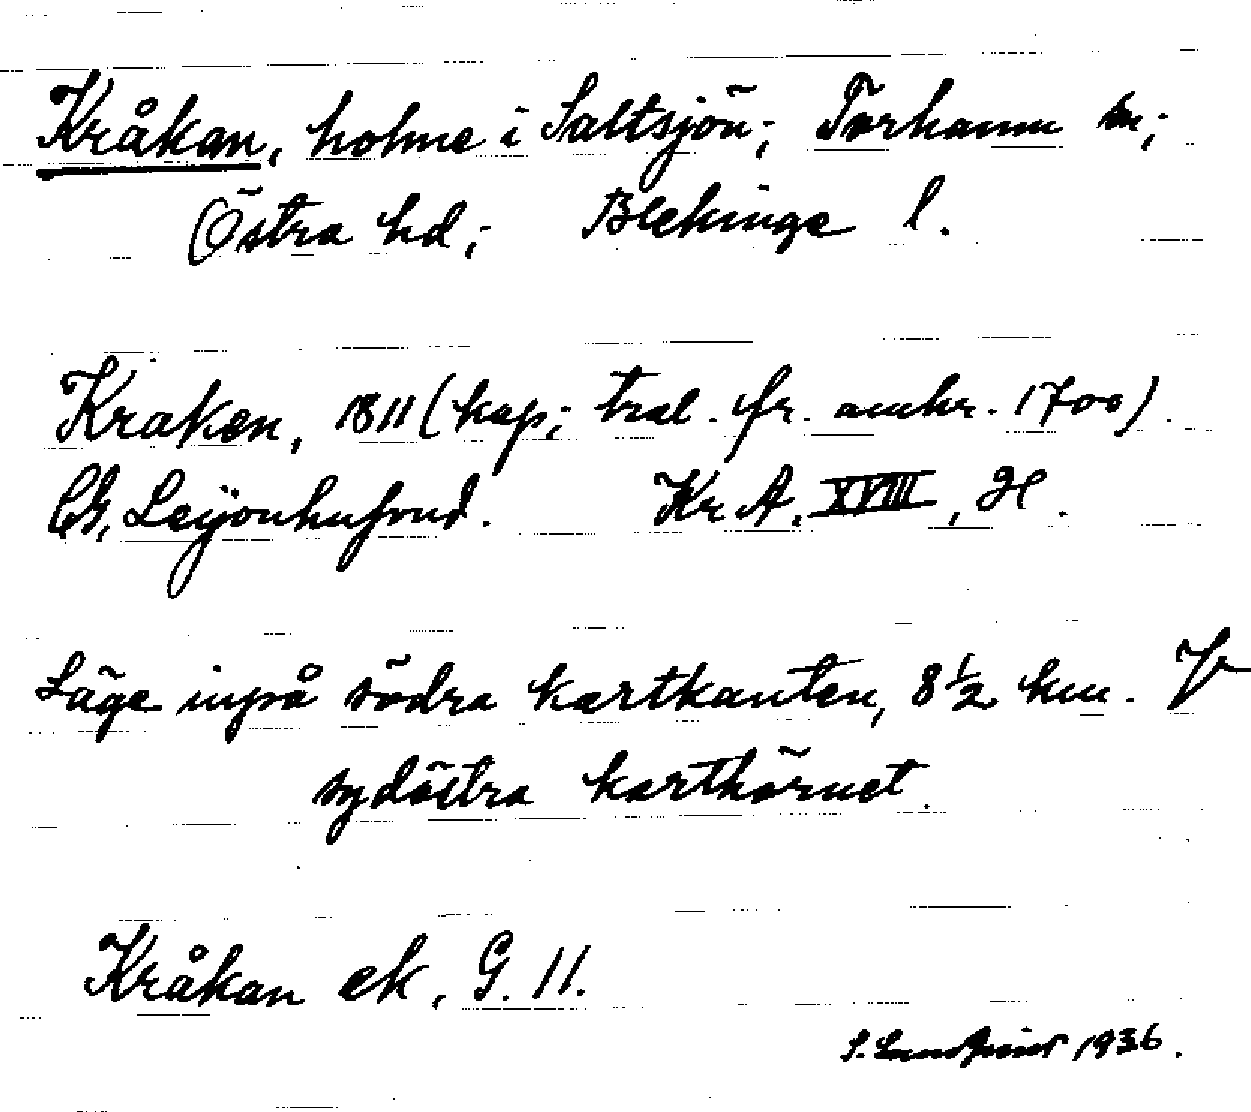 Kråkan, holme i Saltsjön; Torhamn sn;
Östra hd; Blekinge l.
Kraken, 1811 (kop; trol. fr. omkr. 1700).
Ch. Leijonhufvud. Kr A. XVIII, H.
Läge inpå södra kartkanten, 8 1/2 km. fr
sydöstra karthörnet.
Kråkan ek. G. 11.
1936.